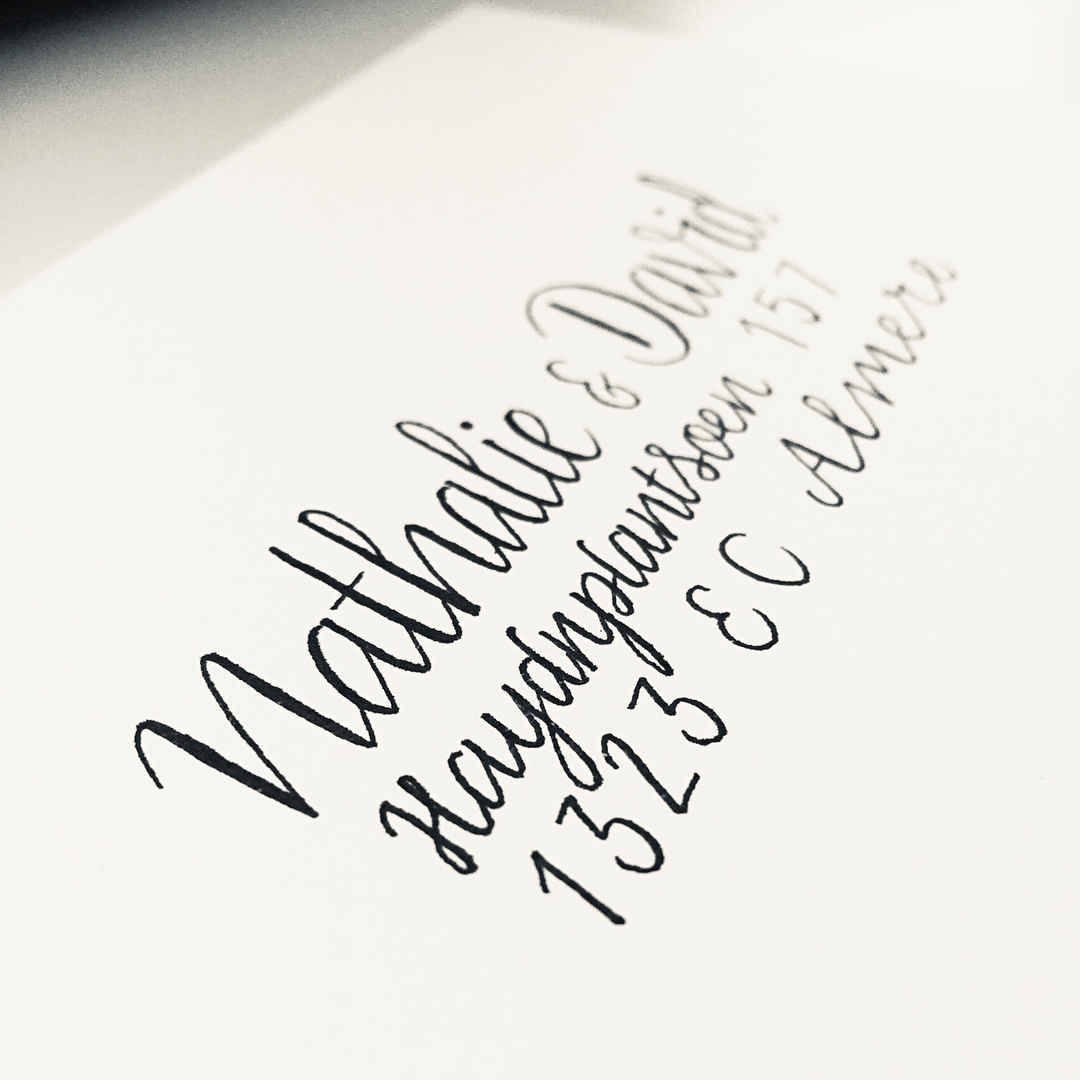 Nathalie & David
Haydnplantsoen 157
1323 EC Almere